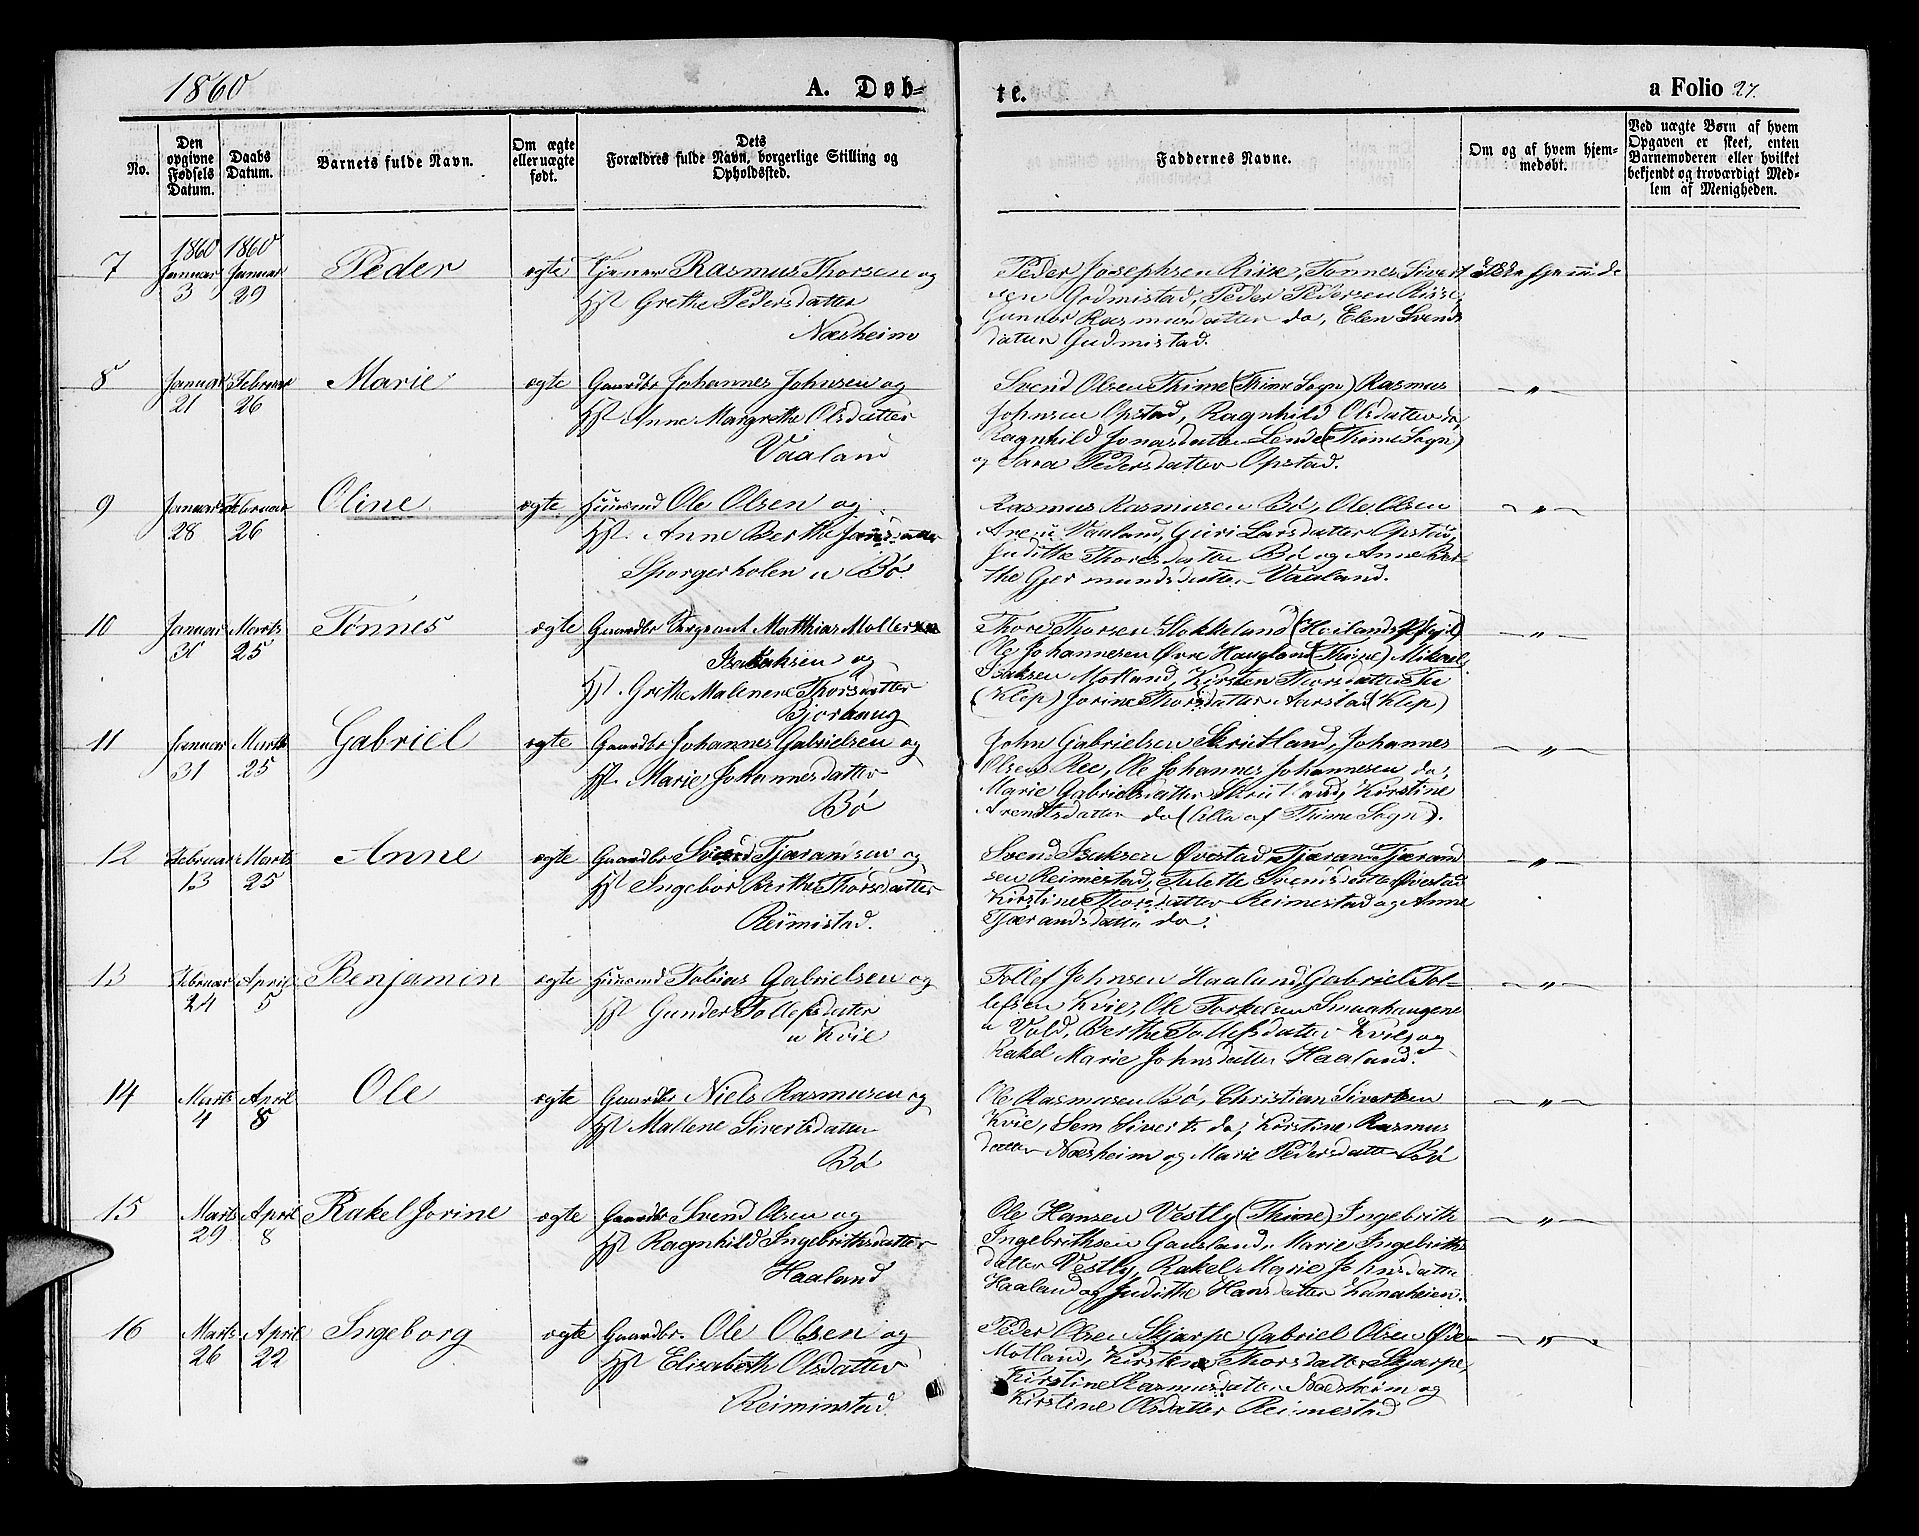 1860 A. Døb-
te. a Folio 27.
No.
Den
opgivne
Fødsels
Datum.
Daabs
Datum.
Barnets fulde Navn.
Om ægte
eller uægte
født.
Dets
Forældres fulde Navn, borgerlige Stilling og
Opholdssted.
Faddernes Navne.
Om og af hvem hjem-
medøbt.
Ved uægte Børn af hvem
Opgaven er skeet, enten
Barnemoderen eller hvilket
bekjendt og troværdigt Med-
lem af Menigheden.
1860 1860
7 Januar Januar Peder ægte Tjener Rasmus Thorsen og
3 29 Hst Grethe Pedersdatter
Næsheim
Peder Josephsen Riise, Tønnes Sivert
sen Godmistad, Peder Pedersen Riise
Gunvor Rasmusdatter do, Elen Svends
datter Gudmistad.
8 Januar Februar Marie ægte Gaardbr Johannes Johnsen og
21 26 Hst Anne Margrethe Olsdatter
Vaaland
Svend Olsen Thime (Thime Sogn) Rasmus
Johnsen Opstad, Ragnhild Olsdatter do,
Ragnhild Jonasdatter Lende (Thime Sogn)
og Sara Pedersdatter Opstad.
— " —
9 Januar Februar Oline ægte Huusmd Ole Olsen og
28 26 Hst. Anne Berthe
Sporgerholen u Bø.
Rasmus Rasmusen Bø, Ole Olsen
Vaaland, Guri Larsdatter Opstad,
Judithe Thoresdatter Bø og Anne Ber-
the Gjermundsdatter Vaaland.
— " —
10 Januar Marts Tønnes ægte Gaardbr Sergeant Matthias Moller
31 25 Isaksen og
Hst. Grethe Malene Thorsdatter
Bjorhaug
Thore Thorsen Stokkeland (Høilands Pgjld)
Ole Johannesen Øvre Haugland (Thime) Mikael
Isaksen Motland, Kirsten Thorsdatter Tu
(Klep) Jorine Thorsdatter Aarstad (Klep)
— " —
11 Januar Marts Gabriel ægte Gaardbr Johannes Gabrielsen og
31 25 Hst. Marie Johannesdatter
Bø
John Gabrielsen Skrutland, Johannes
Olsen Ree, Ole Johannes Johannesen do,
Marie Gabrielsdatter Skrutland, Kirstine
Arentsdatter do (Alle af Thime Sogn).
— " —
12 Februar Marts Anne ægte Gaardbr Svend Tjærandsen og
13 25 Hst Ingebor Berthe Thorsdatter
Reimistad.
Svend Isaksen Øvestad, Tjærand Tjærand
sen Reimestad, Tolette Svendsdatter Øvestad
Kirstine Thorsdatter Reimestad og Anne
Tjærandsdatter do.
— " —
13 Februar April Benjamin ægte Huusmd Tobias Gabrielsen og
24 5 Hst Gunder Tollefsdatter
u Kvie
Tollef Johnsen Haaland, Gabriel Tol-
lefsen Kvie, Ole Torkelsen Smaahaugene
u Vold, Berthe Tollefsdatter Kvie og
Rakel Marie Johnsdatter Haaland.
— " —
14 Marts April Ole ægte Gaardbr Niels Rasmusen og
4 8 Hst Mallene Sivertsdatter
Bø
Ole Rasmusen Bø, Christian Sivertsen
Kvie, Sem Sivert s. do, Kirstine Rasmus
datter Næsheim og Marie Pedersdatter Bø
— " —
15 Marts April Rakel Jorine ægte Gaardbr Svend Olsen og
29 8 Hst Ragnhild Ingebrithsdatter
Haaland
Ole Hansen Vestly (Thime) Ingebrith
Ingebrithsen Gausland, Marie Ingebriths
datter Vestly, Rakel Marie Johnsdatter
Haaland og Judithe Hansdatter Kanaheien.
— " —
16 Marts April Ingeborg ægte Gaardbr. Ole Olsen og
26 22 Hst Elisabeth Olsdatter
Reiminstad
Peder Olsen Skjarpe Gabriel Olsen Øde-
Motland, Kirstine Thorsdatter Skjarpe,
Kirstine Rasmusdatter Næsheim og
Kirstine Olsdatter Reimestad
— " —